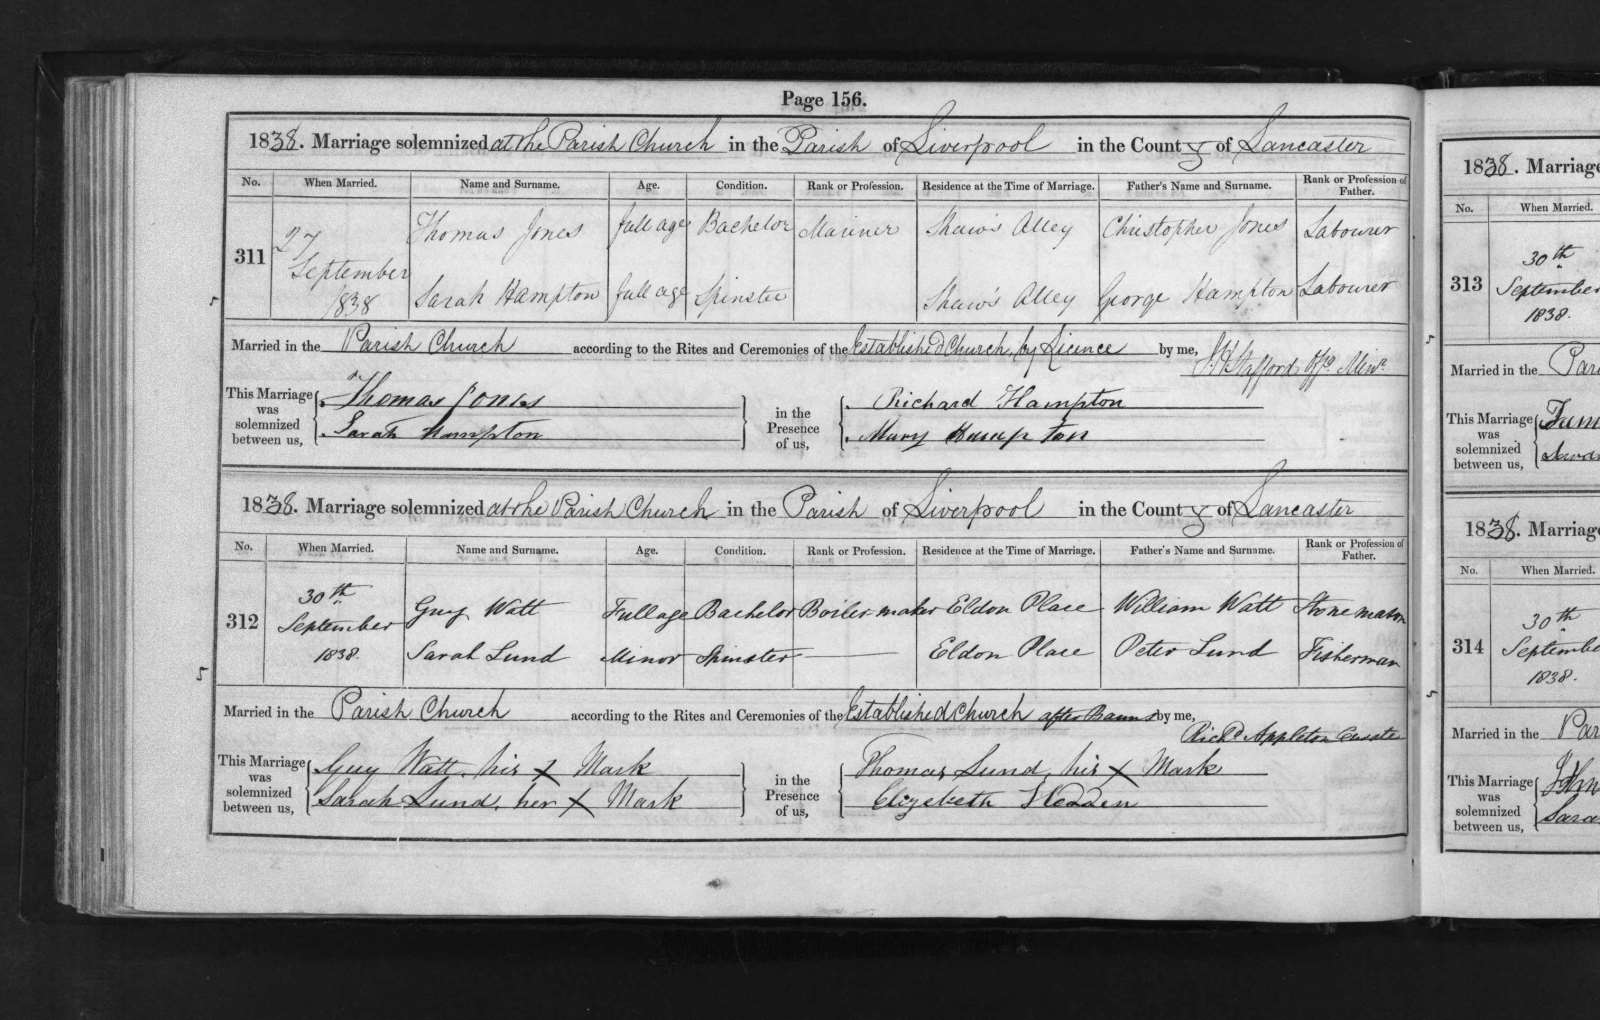 Page 156.
1838. Marriage solemnized at the Parish Church in the Parish of Liverpool in the County of Lancaster
No. When Married. Name and Surname. Age. Condition. Rank or Profession. Residence at the Time of Marriage. Father's Name and Surname. Rank or Profession of Father.
311 27 September 1838 Thomas Jones full age Bachelor Mariner Shaw's Alley Christopher Jones Labourer
Sarah Hampton full age Spinster Shaw's Alley George Hampton Labourer
5
Married in the Parish Church according to the Rites and Ceremonies of the Established Church, by Licence by me,
Stafford Offg Minr
This Marriage was solemnized between us, Thomas Jones in the Presence of us, Richard Hampton
Sarah Hampton Mary Hampton
1838. Marriage solemnized at the Parish Church in the Parish of Liverpool in the County of Lancaster
No. When Married. Name and Surname. Age. Condition. Rank or Profession. Residence at the Time of Marriage. Father's Name and Surname. Rank or Profession of Father.
312 30th September 1838. Guy Watt Full age Bachelor Boiler maker Eldon Place William Watt Stone mason
Sarah Lund Minor Spinster Eldon Place Peter Lund Fisherman
5
Married in the Parish Church according to the Rites and Ceremonies of the Established Church after Banns by me,
Richd Appleton Curate
This Marriage was solemnized between us, Guy Watt, his X Mark in the Presence of us, Thomas Lund, his X Mark
Sarah Lund, her X Mark Elizabeth Hedden
1838. Marriage
No. When Married.
313 30th September 1838.
5
Married in the Par
This Marriage was solemnized between us,
1838. Marriage
No. When Married.
314 30th Septembe 1838.
5
Married in the Par
This Marriage was solemnized between us, John
Sara